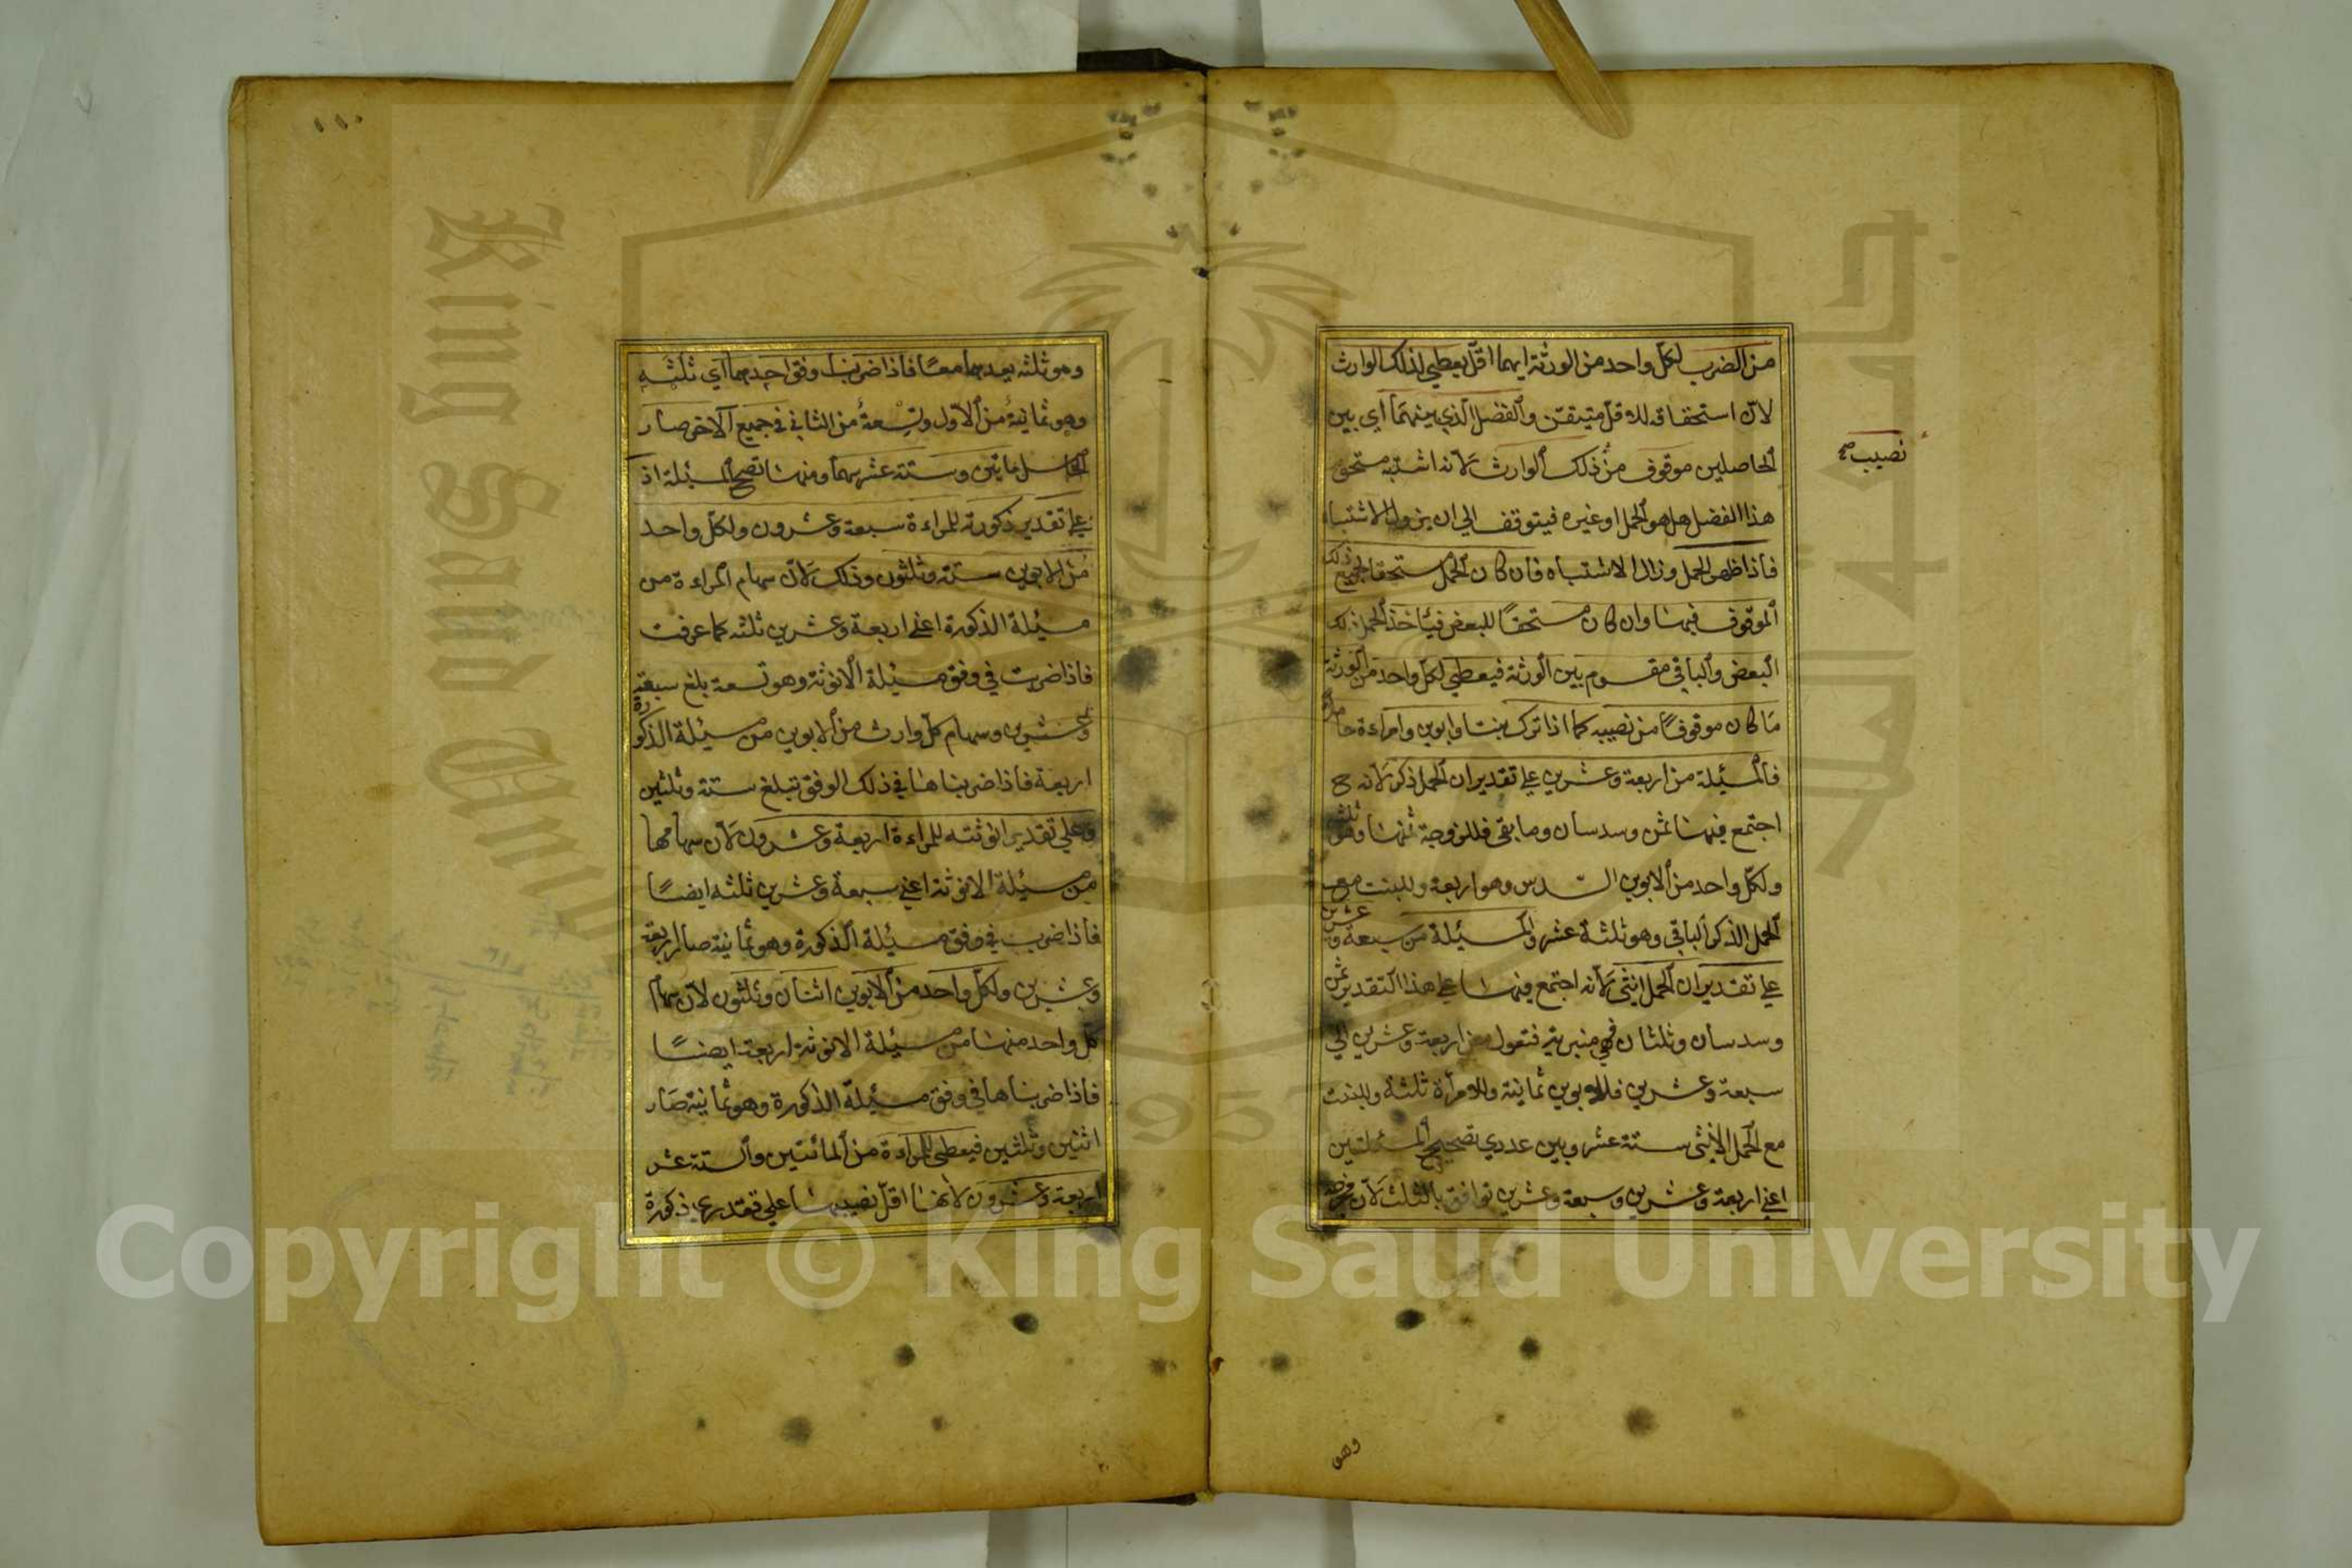 من الضرب لكل واحد من الورثة ايهما اقل يعطي لذلك الوارث
لان استحقاقه للاقل متيقن والفضل الذي بينهما اي بين
الحاصلين موقوف من ذلك الوارث لانه اشتبه مستحق
نصيب صح
هذا الفضل هل هو الحمل او غيره فيتوقف الي ان يزول الاشتباه
فاذا ظهر الحمل وزال الاشتباه فان كان الحمل مستحقا لجميع ذلك
الموقوف فبها وان كان مستحقًا للبعض فيأخذ الحمل ذلك
البعض والباقي مقسوم بين الورثة فيعطي لكل واحد من الورثة
ما كان موقوفًا من نصيبه كما اذا ترك بنتا وابوين وامراءة حاملا
فالمسئلة من اربعة وعشرين علي تقدير ان الحمل ذكر لانه ح
اجتمع فيها ثمن وسدسان وما بقي فللزوجة ثمنها وهو ثلثة
ولكل واحد من الابوين السدس وهو اربعة وللبنت مع
الحمل الذكر الباقي وهو ثلثة عشر والمسئلة من سبعة وعشرين
علي تقدير ان الحمل انثي لانه اجتمع فيها علي هذا التقدير ثمن
وسدسان وثلثان فهي منبرية فتعول من اربعة وعشرين الي
سبعة وعشرين فللابوين ثمانية وللامرأة ثلثة وللبنت
مع الحمل الانثي ستة عشر وبين عددي تصحيح المسئلتين
اعني اربعة وعشرين وسبعة وعشرين توافق بالثلث لان مخرجه
وهو
١١٠
وهو ثلثه يعدهما معًا فاذا ضربنا وفق احدهما اي ثلثه
وهو ثمانية من الاول وتسعة من الثاني في جميع الآخر صار
الحاصل مايتين وستة عشر سهما ومنها تصح المسئلة اذ
علي تقدير ذكورته للمراءة سبعة وعشرون ولكل واحد
من الابوين ستة وثلثون وذلك لان سهام المراءة من
مسئلة الذكورة اعني اربعة وعشرين ثلثه كما عرفت
فاذا ضربت في وفق مسئلة الانوثة وهو تسعة بلغ سبعة
وعشرين وسهام كل وارث من الابوين من مسئلة الذكورة
اربعة فاذا ضربناها في ذلك الوفق تبلغ ستة وثلثين
وعلي تقدير انوثته للمراءة اربعة وعشرون لان سهامها
من مسئلة الانوثة اعني سبعة وعشرين ثلثه ايضًا
فاذا ضرب في وفق مسئلة الذكورة وهو ثمانية صار اربعة
وعشرين ولكل واحد من الابوين اثنان وثلثون لان سهام
كل واحد منها من مسئلة الانوثة اربعة ايضًا
فاذا ضربناها في وفق مسئلة الذكورة وهو ثمانية صار
اثنين وثلثين فيعطي للمراءة من المائتين والستة عشر
اربعة وعشرون لانها اقل نصيبها علي تقديري ذكورة
King Saud University
Copyright © King Saud University